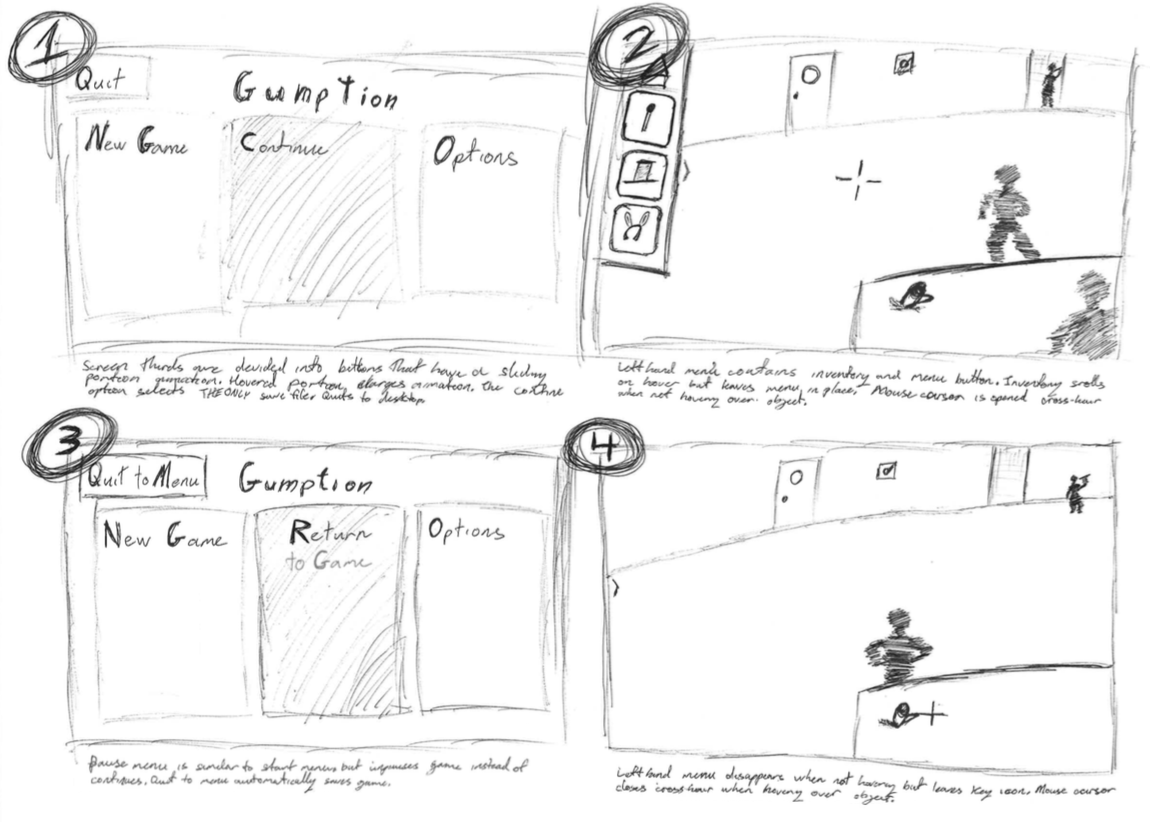 1
Quit
Gumption
New Game
Continue
Options
Screen thirds are devided into buttons that have a sliding
portion animation. Hovered portion enlarges animation. The continue
option selects THE ONLY save file. Quits to desktop.
2
Left hand menu contains inventory and menu button. Inventory scrolls
on hover but leaves menu in place. Mouse cursor is opened cross-hair
when not hovering over object.
3
Quit to Menu
Gumption
New Game
Return
to Game
Options
Pause menu is similar to start menu but unpauses game instead of
continues. Quit to menu automatically saves game.
4
Left hand menu disappears when not hovering but leaves key icon. Mouse cursor
closes cross-hair when hovering over object.